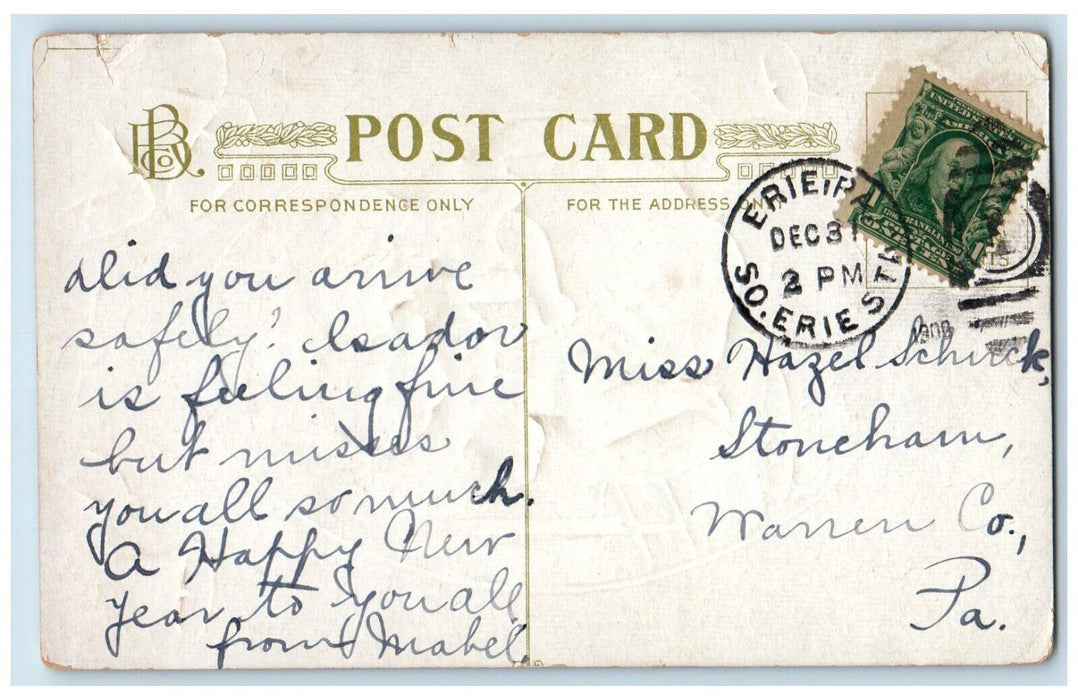 BRCo.
POST CARD
FOR CORRESPONDENCE ONLY
FOR THE ADDRESS ONLY
ERIE, PA.
DEC 31
2 PM
SO. ERIE STA.
1908
UNITED STATES
OF AMERICA
Did you arrive
safely? Isador
is feeling fine
but misses
you all so much.
A Happy New
Year to you all
from Mabel.
Miss Hazel Schuck,
Stoneham,
Warren Co.,
Pa.